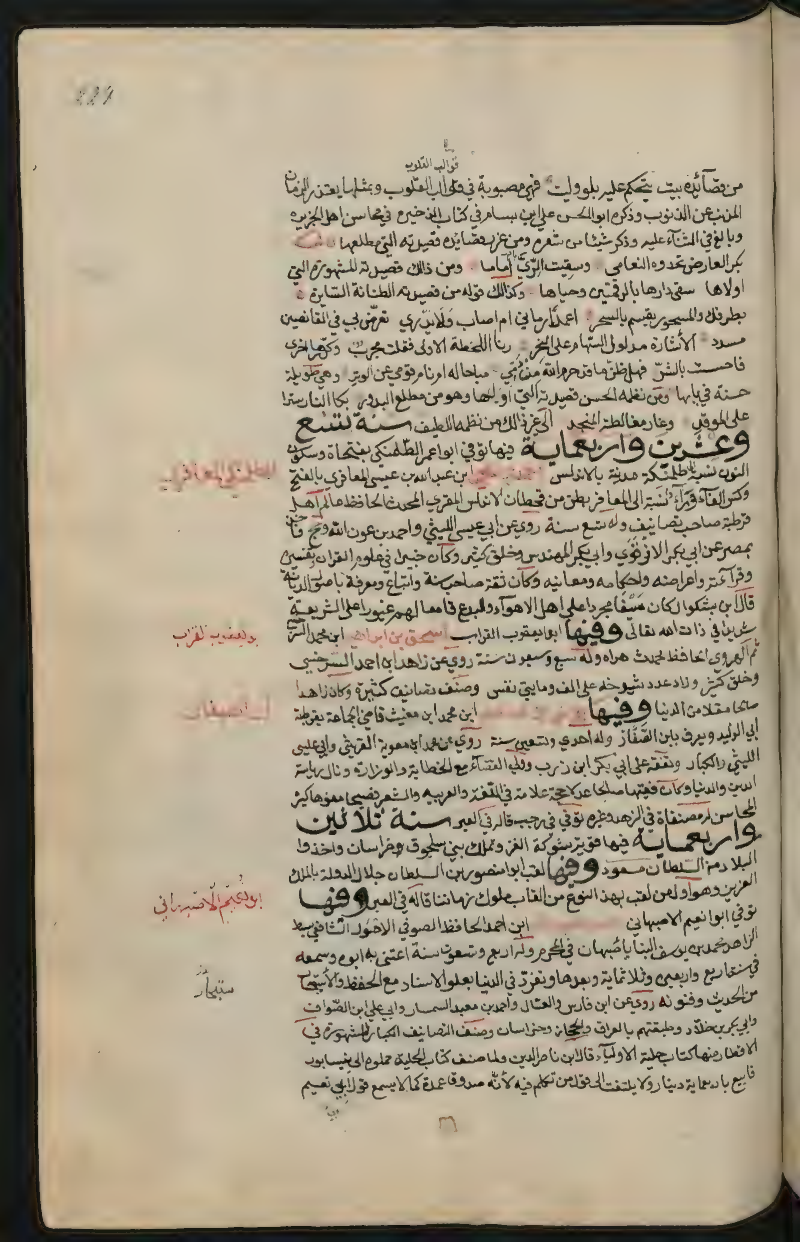 قوالب القلوب
من قصائده بيت يتحكم عليه بلو وليت فهي مصبوبة في قوالب القلوب وبمثلها يعتذر الزمان
المذنب عن الذنوب وذكره ابو الحسن علي ابن بسام في كتاب الذخيره في محاسن اهل الجزيره
وبالغ في الثناء عليه وذكر شيئا من شعره ومن غرر قصايده قصيدته التي مطلعها
بكر العارض تحدوه النعامى وسقيت الريّ اماما ومن ذالك قصيدته المشهورة التي
اولاها سقى دارها بالرقمتين وحياها وكذالك قوله من قصيدته الطنانة السايرة
بطرفك والمسحور يقسم بالسحر اعمدا رماني ام اصاب ولا يدري تعرض لي في القانصين
مسدد الاشارة مدلول السهام على النحر رنا اللحظة الاولى فقلت مجرب وكررها اخرى
فاحست بالشرّ فهل ظن ما قد حرم الله من دمي مباحا له ام نام قومي عن الوتر وهي طويلة
حسنة في بابها ومن نظمه الحسن قصيدته التي اولها وهو من مطلع البدور بكا النار سترا
على الموقد وغار مغالطة المنجد الى غير ذالك من نظمه اللطيف سنة تسع
وعشرين واربعماية فيها توفي ابو اعمر الطلمنكي بفتحاة وسكون
النون نسبة الى طلمنكة مدينة بالاندلس احمد بن محمد ابن عبدالله بن عيسى المعافري بالفتح
وكسر الفاء وراء نسبة الى المعافر بطن من قحطان الاندلس المقري المحدث الحافظ عالم اهل
قرطبة صاحب تصانيف وله تسع سنة روى عن ابي عيسى الليثي واحمد بن عون الله وحج
بمصر عن ابي بكر الاذفوي وابي بكر المهندس وخلق كثير وكان خبيرا في علوم القران تفسيره
وقراءته واعرابه واحكامه ومعانيه وكان ثقة صاحب سنة واتباع ومعرفة باصول الديانة
قال ابن بشكوال كان سيفا مجردا على اهل الاهواء والبدع قامعا لهم غيورا على الشريعة
شديدا في ذات الله تعالى وفيها ابو ايعقوب القراب اسحق بن ابراهيم ابن محمد السرخسي
ثم الهروي الحافظ محدث هراه وله سبع وسبعون سنة روى عن زاهد ابن احمد السرخسي
وخلق كثير وزاد عدد شيوخه على الف ومايتي نفس وصنف تصانيف كثيرة وكان زاهدا
صالحا مقلا من الدنيا وفيها ابن محمد ابن مغيث قاضي الجماعة بقرطبة
ابي الوليد ويعرف بابن الصفاز وله احدي وتسعين سنة روى عن محمد ابن معوية القرشي وابي عيسى
الليثي والكبار وتفقه على ابي بكر ابن زرب وولي القضاء مع الخطابة والوزارة ونال رياسة
الدين والدنيا وكان فقيها صالحا عدلا حجة علامة في الفقه والعربيه والشعر فصيحا مفوها كثير
المحاسن له مصنفات في الزهد وغيره توفي في رجب قاله في العبر سنة ثلاثين
واربعماية فيها قويت شوكة الغز وتملك بني سلجوق وخراسان واخذوا
البلاد من السلطان مسعود وفيها لقب ابو امنصور ابن السلطان جلال الدولة بالملك
العزيز وهو اول من لقب بهذا النوع من القاب ملوك زماننا قاله في العبر وفيها
توفي ابو انعيم الاصبهاني ابن احمد الحافظ الصوفي الاحول الشافعي سبط
الزاهد محمد بن يوسف البنا باصبهان في المحرم وله اربع وتسعون سنة اعتنى به ابوه وسمعه
في سنة اربع واربعين وثلاثماية وبعدها وتفرد في الدنيا بعلو الاسناد مع الحفظ والاستبحار
من الحديث وفنونه روى عن ابن فارس والعسال واحمد بن معبد السمسار وابي علي ابن الصواف
وابي بكر بن خلاد وطبقتهم بالعراق والحجاز وخراسان وصنف التصانيف الكبار المشهورة في
الاقطار منها كتاب حلية الاولياء قال ابن ناصر الدين ولما صنف كتاب الحلية حملوه الى نيسابور
فابيع باربعماية دينار ولا يلتفت الى قول من تكلم فيه لانه صدوق عمدة كما لا يسمع قول ابي نعيم
الطلمنكي المعافري
بو ايعقوب القراب
ابن الصفار
ابو انعيم الاصبهاني
ستبحار